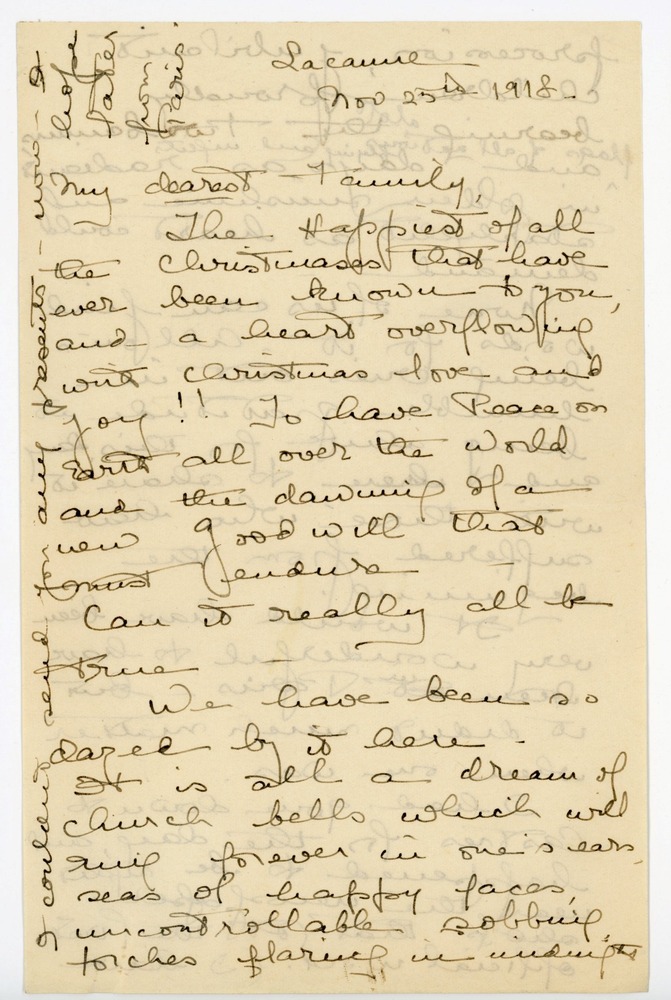 Lacaune
Nov 25th 1918-
My dearest Family,
The Happiest of all
the Christmases that have
ever been known to you,
and a heart overflowing
with Christmas love and
joy!! To have Peace on
Earth all over the world
and the dawning of a
new Good will that
must endure -
Can it really all be
true -
We have been so
dazed by it here -
It is all a dream of
church bells which will
ring forever in one's ears,
seas of happy faces,
uncontrollable sobbing,
torches flaring in midnights
I couldn't send you any presents - now - I
hope
later
from
Paris